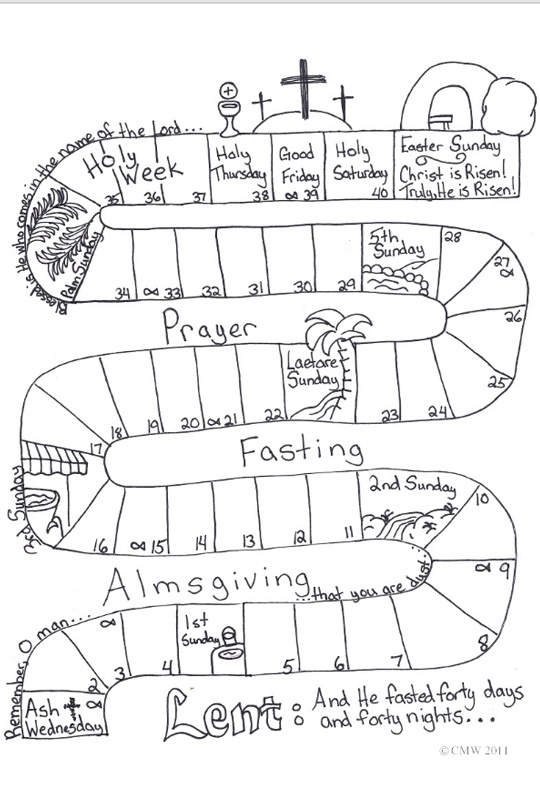 Blessed is He who comes in the name of the Lord...
Holy
Week
35
36
37
Holy
Thursday
38
Good
Friday
∞ 39
Holy
Saturday
40
Easter Sunday
Christ is Risen!
Truly, He is Risen!
Palm Sunday
34
∞ 33
32
31
30
29
5th
Sunday
28
27
∞
26
25
Prayer
18
19
20
∞ 21
22
Laetare
Sunday
23
24
17
Fasting
3rd Sunday
16
∞ 15
14
13
12
11
2nd Sunday
10
∞ 9
8
Almsgiving
...that you are dust.
Remember, O man...
∞
2
3
4
1st
Sunday
5
6
7
Ash
Wednesday
∞
Lent: And He fasted forty days
and forty nights...
©CMW 2011